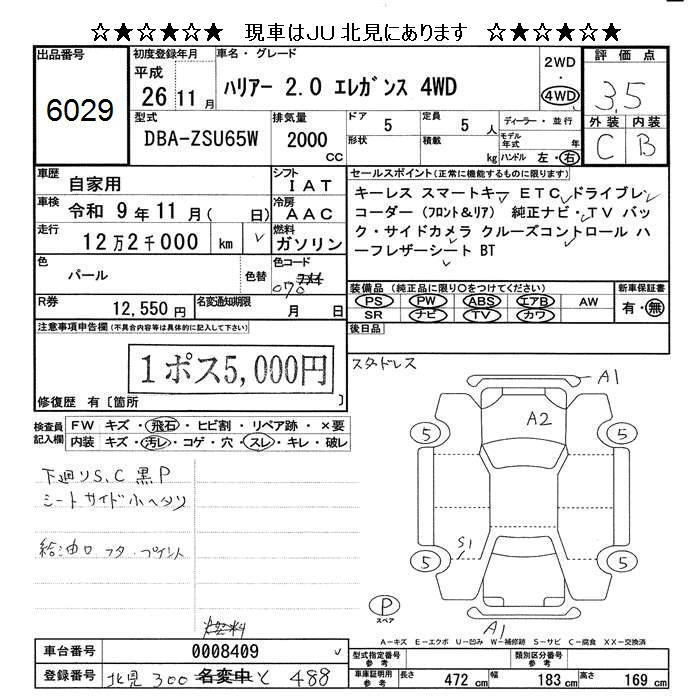 ☆★☆★☆★ 現車はJU北見にあります ☆★☆★☆★
出品番号
6029
初度登録年月
平成 26 11月
車名・グレード
ハリアー 2.0 エレガンス 4WD
2WD
・
4WD
評価点
3.5
外装 内装
C B
型式
DBA-ZSU65W
排気量
2000 cc
ドア 5
形状
定員 5 人
積載 kg
ディーラー・並行
モデル年式 年
ハンドル 左・右
車歴 自家用
車検 令和 9年11月( 日)
走行 12万2千000 km ✓
シフト IAT
冷房 AAC
燃料 ガソリン
色 パール
色替
色コード
070
セールスポイント(正常に機能するものに限ります)
キーレス スマートキー ETC ドライブレ
コーダー(フロント&リア) 純正ナビ・TV バッ
ク・サイドカメラ クルーズコントロール ハ
ーフレザーシート BT
装備品(純正品に限り〇をつけてください)
PS PW ABS エアB AW
SR ナビ TV カワ
新車保証書
有・無
R券 12,550円
名変通知期限 月 日
後日品
スタッドレス
注意事項申告欄(不具合内容等は具体的に記入して下さい)
1ポス5,000円
修復歴 有〔箇所 〕
検査員記入欄
FW キズ・飛石・ヒビ割・リペア跡・×要
内装 キズ・汚レ・コゲ・穴・スレ・キレ・破レ
下廻りS、C 黒P
シートサイド小ヘタリ
給油口フタ・ペイント
A1
A2
5 5
S1
5 5
P
スペア
A1
A-キズ E-エクボ U-凹み W-補修跡 S-サビ C-腐食 XX-交換済
車台番号 0008409 ✓
登録番号 北見 300 名変中 と 488
型式指定番号 参考
類別区分番号 参考
車庫証明用 参考 長さ 472 cm 幅 183 cm 高さ 169 cm